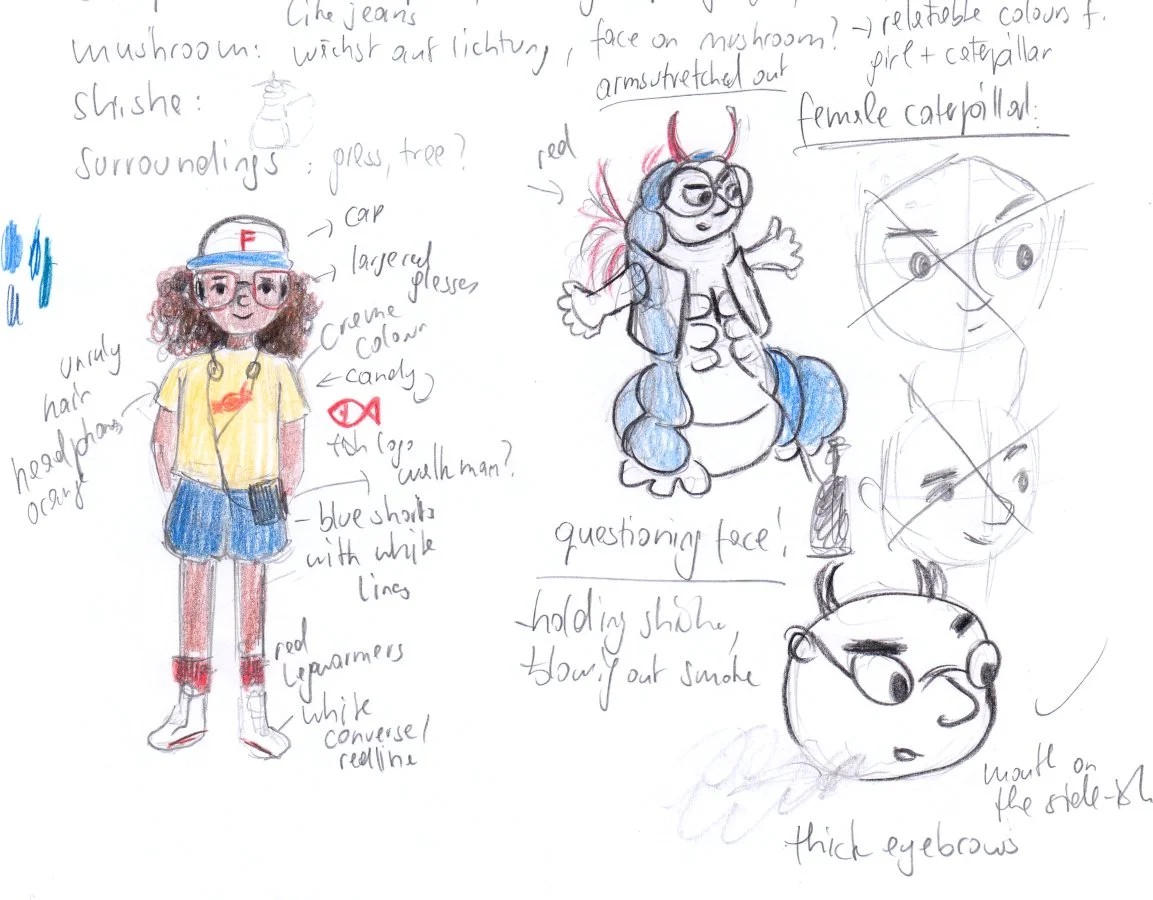 like jeans
mushroom: wächst auf lichtung, face on mushroom? → relatable colours f.
girl + caterpillar
armsutretched out
shishe:
female caterpillar:
surroundings: gress, tree?
red
F
cap
large red
glesses
creme
colour
candy
unruly
hair
headphones
orange
fish logo
walkman?
blue shorts
with white
lines
red
legwarmers
white
converse/
redline
questioning face!
holding shishe,
blowing out smoke
mouth on
the side-ish
thick eyebrows